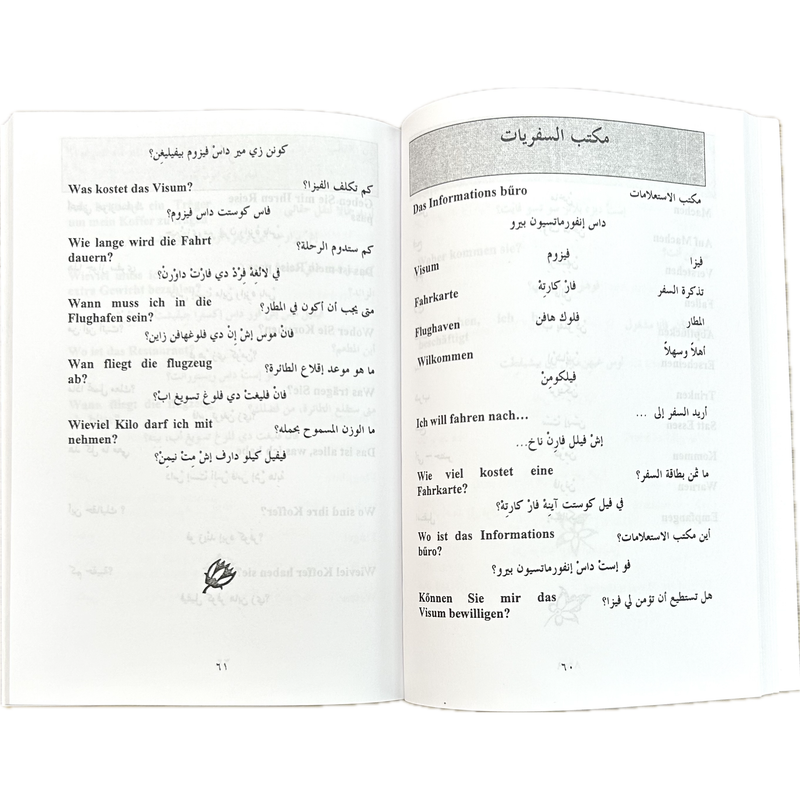 مكتب السفريات
Das Informations bűro مكتب الاستعلامات
داس إنفورماتسيون بيرو
Visum فيزوم فيزا
Fahrkarte فارْ كارتِهْ تذكرة السفر
Flughaven فلوك هافن المطار
Wilkommen أهلاً وسهلاً
فيلكومِنْ
Ich will fahren nach... أريد السفر إلى ...
إشْ فيلل فارِنْ ناخ...
Wie viel kostet eine ما ثمن بطاقة السفر؟
Fahrkarte?
في فيل كوستت آينِهْ فارْ كارتِهْ؟
Wo ist das Informations أين مكتب الاستعلامات؟
bűro?
فو إستْ داسْ إنفورماتسيون بيرو؟
Kőnnen Sie mir das هل تستطيع أن تؤمن لي فيزا؟
Visum bewilligen?
٦٠
كونن زي مير داسْ فيزوم بيفيليغِن؟
Was kostet das Visum? كم تكلف الفيزا؟
فاس كوستت داس فيزوم؟
Wie lange wird die Fahrt كم ستدوم الرحلة؟
dauern?
في لانْغِهْ فِرْدْ دي فارْت داوْرنْ؟
Wann muss ich in die متى يجب أن أكون في المطار؟
Flughafen sein?
فانْ موس إشْ إنْ دي فلوغهافن زاين؟
Wan fliegt die flugzeug ما هو موعد إقلاع الطائرة؟
ab?
فانْ فليغتْ دي فلوغ تسويغ ابْ؟
Wieviel Kilo darf ich mit ما الوزن المسموح بحمله؟
nehmen?
فيفيل كيلو دارف إشْ مِتْ نيمِنْ؟
٦١